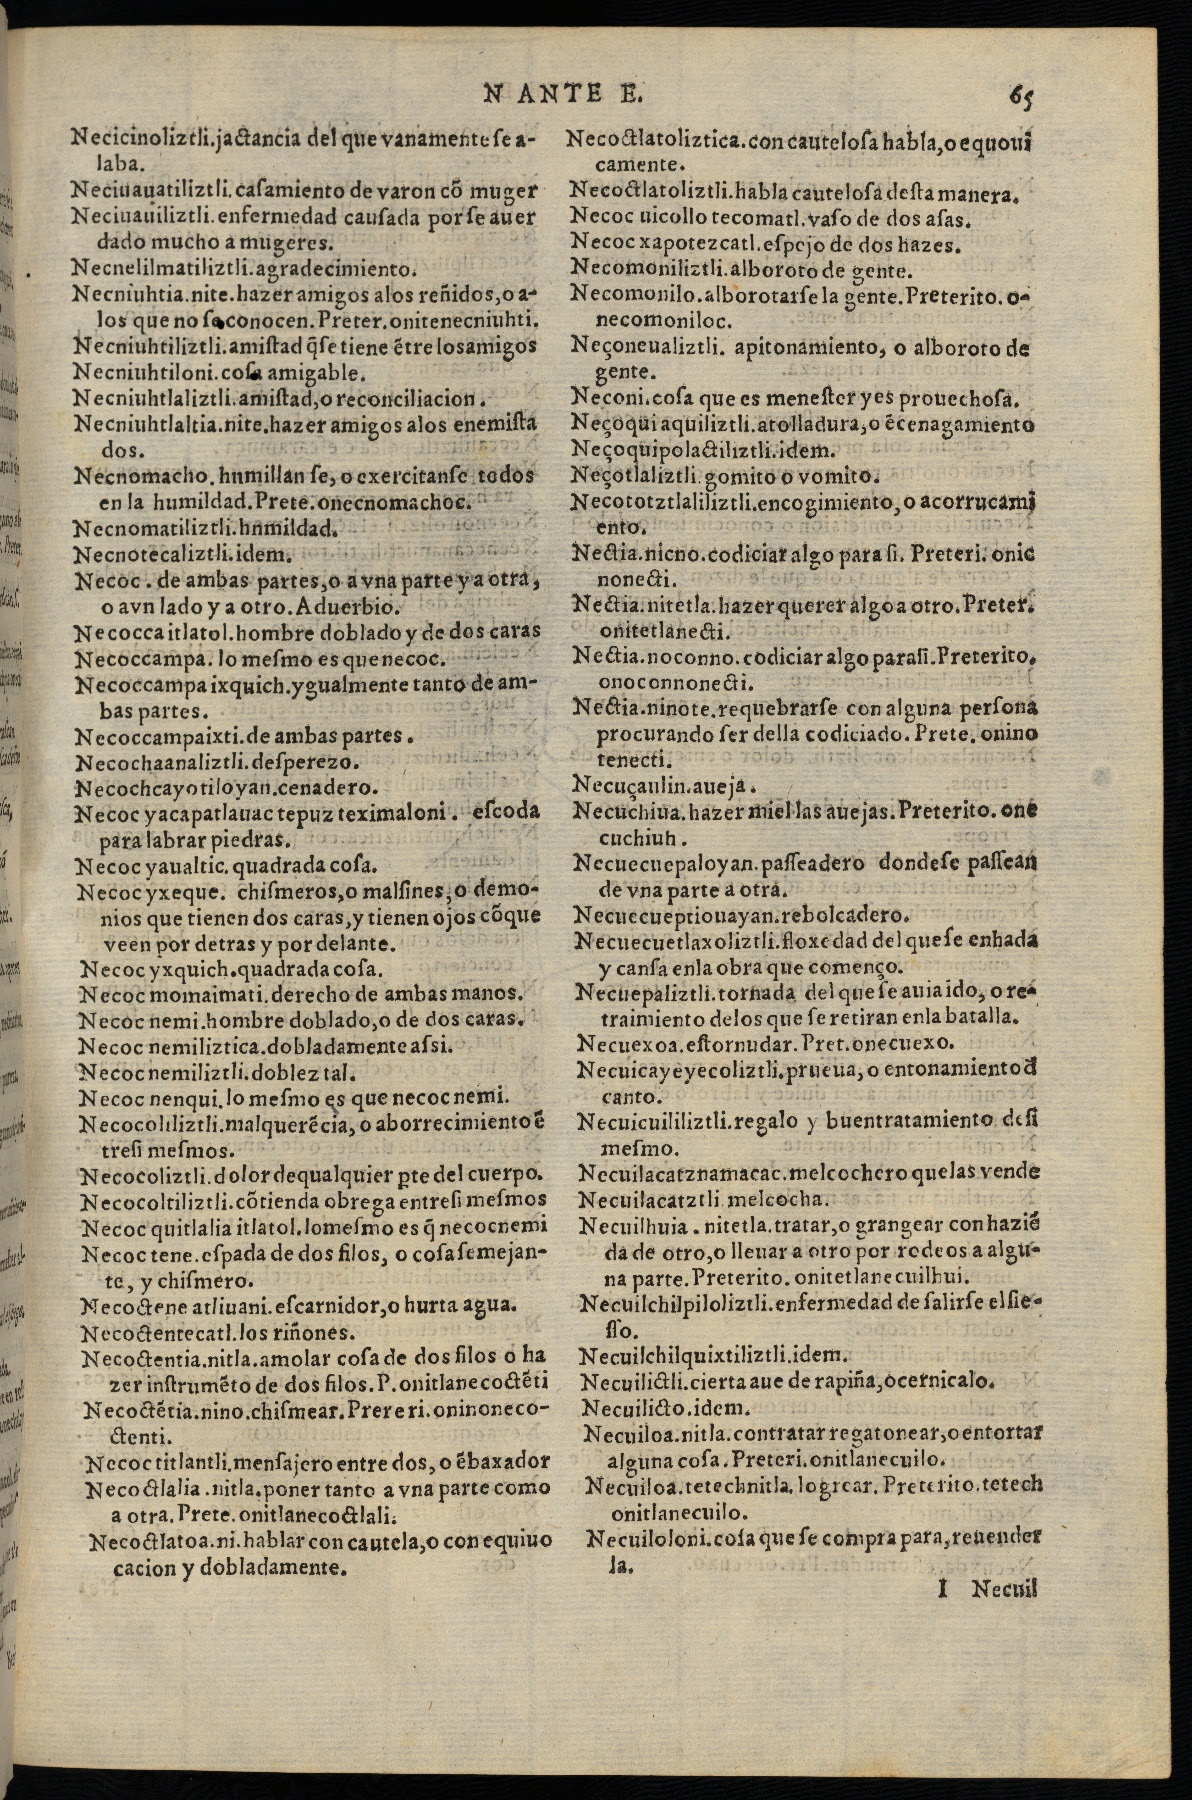 N ANTE E. 65
Necicinoliztli.jactancia del que vanamente se a-
laba.
Neciuauatiliztli.casamiento de varon cõ muger
Neciuauiliztli.enfermedad causada por se auer
dado mucho a mugeres.
Necnelilmatiliztli.agradecimiento.
Necniuhtia.nite.hazer amigos alos reñidos,o a-
los que no se conocen.Preter.onitenecniuhti.
Necniuhtiliztli.amistad q̃se tiene ẽtre losamigos
Necniuhtiloni.cosa amigable.
Necniuhtlaliztli.amistad,o reconciliacion.
Necniuhtlaltia.nite.hazer amigos alos enemista
dos.
Necnomacho.hnmillan se,o exercitanse todos
en la humildad.Prete.onecnomachoc.
Necnomatiliztli.hnmildad.
Necnotecaliztli.idem.
Necoc.de ambas partes,o a vna parte y a otra,
o avn lado y a otro.Aduerbio.
Necocca itlatol.hombre doblado y de dos caras
Necoccampa.lo mesmo es que necoc.
Necoccampa ixquich.ygualmente tanto de am-
bas partes.
Necoccampaixti.de ambas partes.
Necochaanaliztli.desperezo.
Necochcayotiloyan.cenadero.
Necoc yacapatlauac tepuz teximaloni. escoda
para labrar piedras.
Necoc yaualtic.quadrada cosa.
Necoc yxeque. chismeros,o malsines,o demo-
nios que tienen dos caras,y tienen ojos cõque
veen por detras y por delante.
Necoc yxquich.quadrada cosa.
Necoc momaimati.derecho de ambas manos.
Necoc nemi.hombre doblado,o de dos caras.
Necoc nemiliztica.dobladamente assi.
Necoc nemiliztli.doblez tal.
Necoc nenqui.lo mesmo es que necoc nemi.
Necocoliliztli.malquerẽcia,o aborrecimiento ẽ
tresi mesmos.
Necocoliztli.dolor dequalquier p̱te del cuerpo.
Necocoltiliztli.cõtienda obrega entresi mesmos
Necoc quitlalia itlatol.lomesmo es q̃ necocnemi
Necoc tene.espada de dos filos, o cosa semejan-
te, y chismero.
Necoctene atliuani.escarnidor,o hurta agua.
Necoctentecatl.los riñones.
Necoctentia.nitla.amolar cosa de dos filos o ha
zer instrumẽto de dos filos.P.onitlanecoctẽti
Necoctẽtia.nino.chismear.Prereri.oninoneco-
ctenti.
Necoc titlantli.mensajero entre dos,o ẽbaxador
Necoctlalia.nitla.poner tanto a vna parte como
a otra.Prete.onitlanecoctlali.
Necoctlatoa.ni.hablar con cautela,o con equiuo
cacion y dobladamente.
Necoctlatoliztica.con cautelosa habla,o equoui
camente.
Necoctlatoliztli.habla cautelosa desta manera.
Necoc uicollo tecomatl.vaso de dos asas.
Necoc xapotezcatl.espejo de dos hazes.
Necomoniliztli.alboroto de gente.
Necomonilo.alborotarse la gente.Preterito.o-
necomoniloc.
Neçoneualiztli. apitonamiento, o alboroto de
gente.
Neconi.cosa que es menester y es prouechosa.
Neçoquiaquiliztli.atolladura,o ẽcenagamiento
Neçoquipolactiliztli.idem.
Neçotlaliztli.gomito o vomito.
Necototztlaliliztli.encogimiento,o acorrucami
ento.
Nectia.nicno.codiciar algo para si. Preteri.onic
nonecti.
Nectia.nitetla.hazer querer algo a otro.Preter.
onitetlanecti.
Nectia.noconno.codiciar algo parasi.Preterito.
onoconnonecti.
Nectia.ninote.requebrarse con alguna persona
procurando ser della codiciado. Prete.onino
tenecti.
Necuçaulin.aueja.
Necuchiua.hazer miel las auejas.Preterito.one
cuchiuh.
Necuecuepaloyan.passeadero dondese passean
de vna parte a otra.
Necuecueptiouayan.rebolcadero.
Necuecuetlaxoliztli.floxedad del que se enhada
y cansa enla obra que començo.
Necuepaliztli.tornada del que se auia ido,o re-
traimiento delos que se retiran enla batalla.
Necuexoa.estornudar.Pret.onecuexo.
Necuicayeyecoliztli.prueua,o entonamiento đ
canto.
Necuicuililiztli.regalo y buentratamiento desi
mesmo.
Necuilacatznamacac.melcochero quelas vende
Necuilacatztli melcocha.
Necuilhuia.nitetla.tratar,o grangear con haziẽ
da de otro,o lleuar a otro por rodeos a algu-
na parte.Preterito.onitetlanecuilhui.
Necuilchilpiloliztli.enfermedad de salirse el sie-
sso.
Necuilchilquixtiliztli.idem.
Necuilictli.cierta aue de rapiña,ocernicalo.
Necuilicto.idem.
Necuiloa.nitla.contratar regatonear,o entortar
alguna cosa.Preteri.onitlanecuilo.
Necuiloa.tetechnitla.logrear.Preterito.tetech
onitlanecuilo.
Necuiloloni.cosa que se compra para,reuender
la.
I Necuil